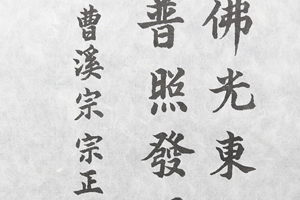 佛光東
普照發
曹溪宗宗正